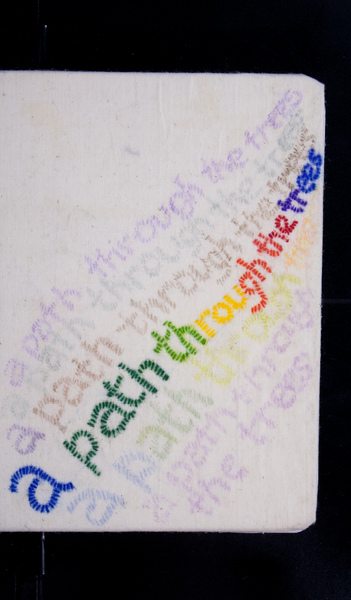 a path through the trees
a path through the trees
a path through the trees
a path through the trees
a path through the
a path through
the trees